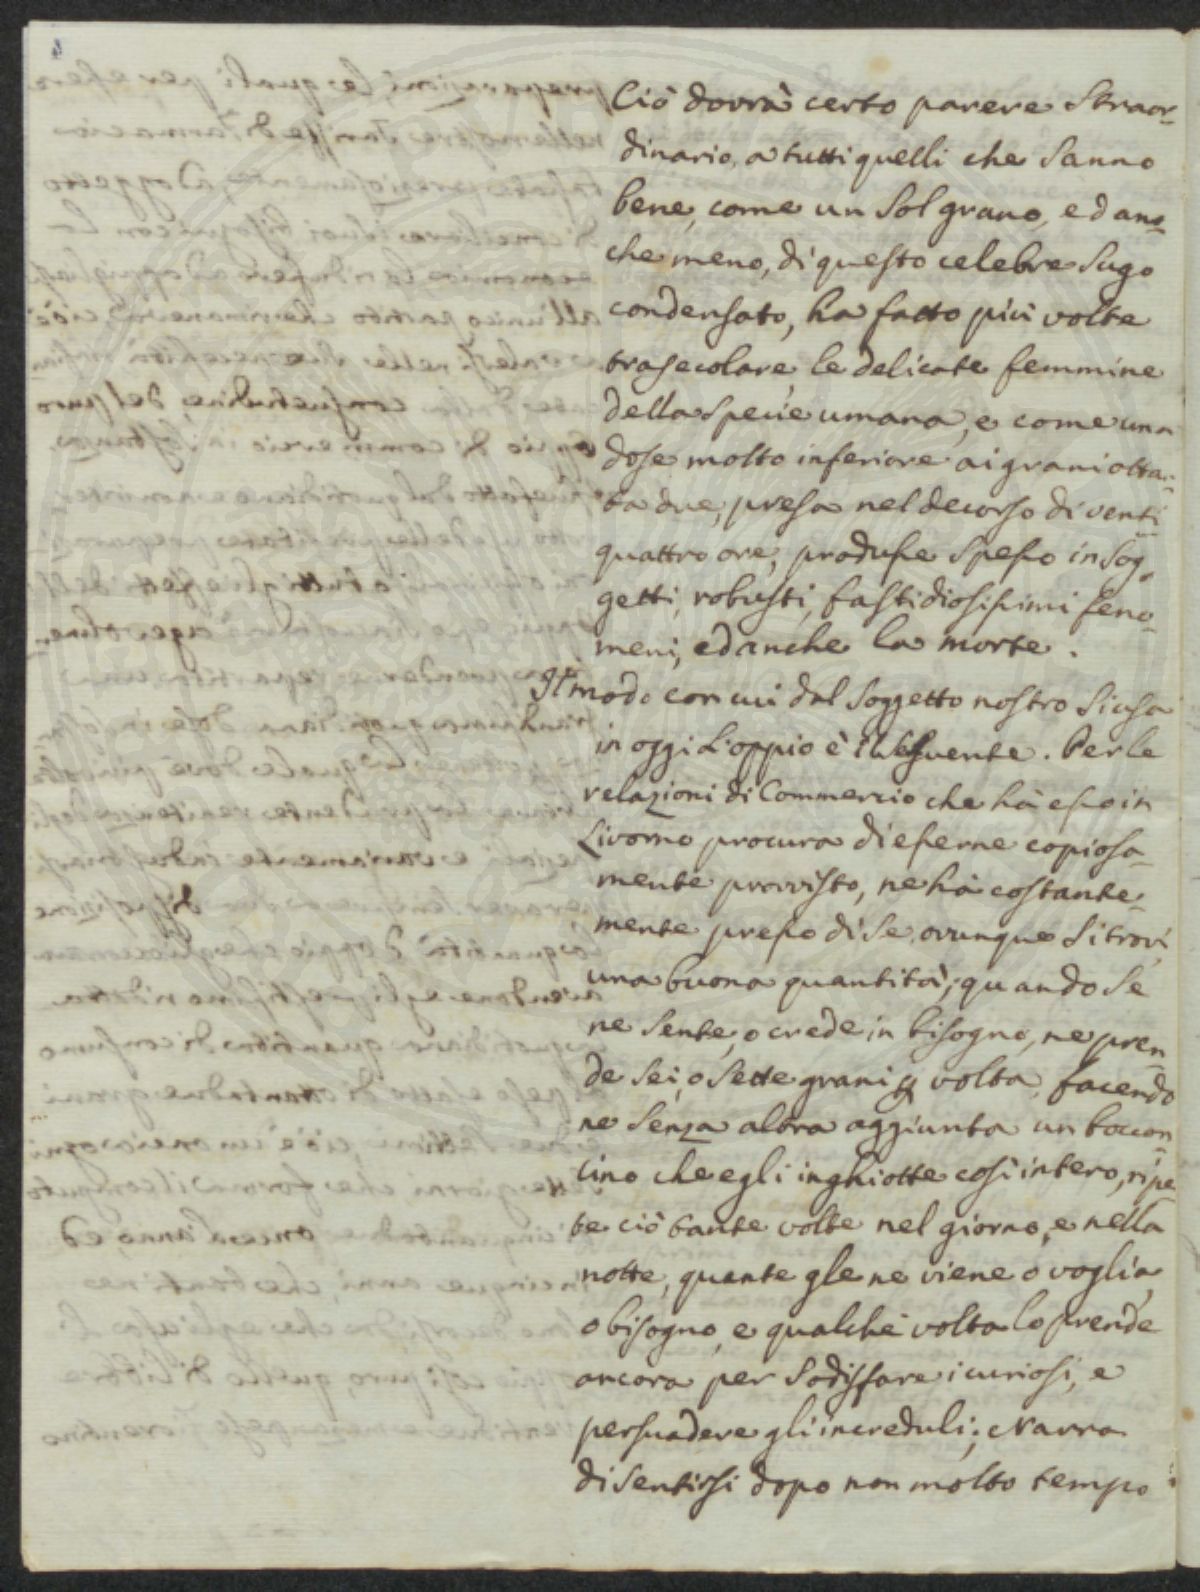 Ciò dovrà certo parere straor-
dinario, a tutti quelli che sanno
bene, come un sol grano, ed an-
che meno, di questo celebre sugo
condensato, ha fatto più volte
trasecolare le delicate femmine
della specie umana, e come una
dose molto inferiore ai grani ottan-
ta due, presa nel decorso di venti-
quattro ore, produsse spesso in sog-
getti, robusti, fastidiosissimi feno-
meni, ed anche la morte.
Il modo con cui dal soggetto nostro si usa
in oggi L'oppio è il seguente. Per le
relazioni di Commercio che hà esso in
Livorno procura di esserne copiosa-
mente provvisto, ne hà costante-
mente presso di se ovunque si trovi,
una buona quantità; quando se
ne sente, o crede in bisogno, ne pren-
de sei, o sette grani volta, facendo
ne senza altra aggiunta un boccon-
cino che egli inghiotte così intero, ripe-
te ciò tante volte nel giorno, e nella
notte, quante gle ne viene o voglia,
o bisogno, e qualche volta lo prende
ancora per sodisfare i curiosi, e
persuadere gli increduli; Narra
di sentirsi dopo non molto tempo